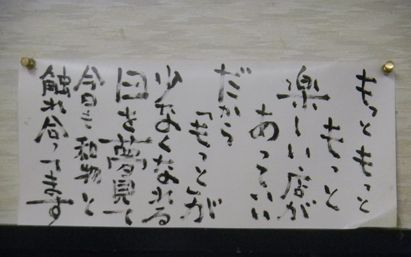 もっともっと
もっと
楽しい店が
あっていい
だから
「もっと」が
少なくなる
日を夢見て
今日も植物と
触れ合ってます